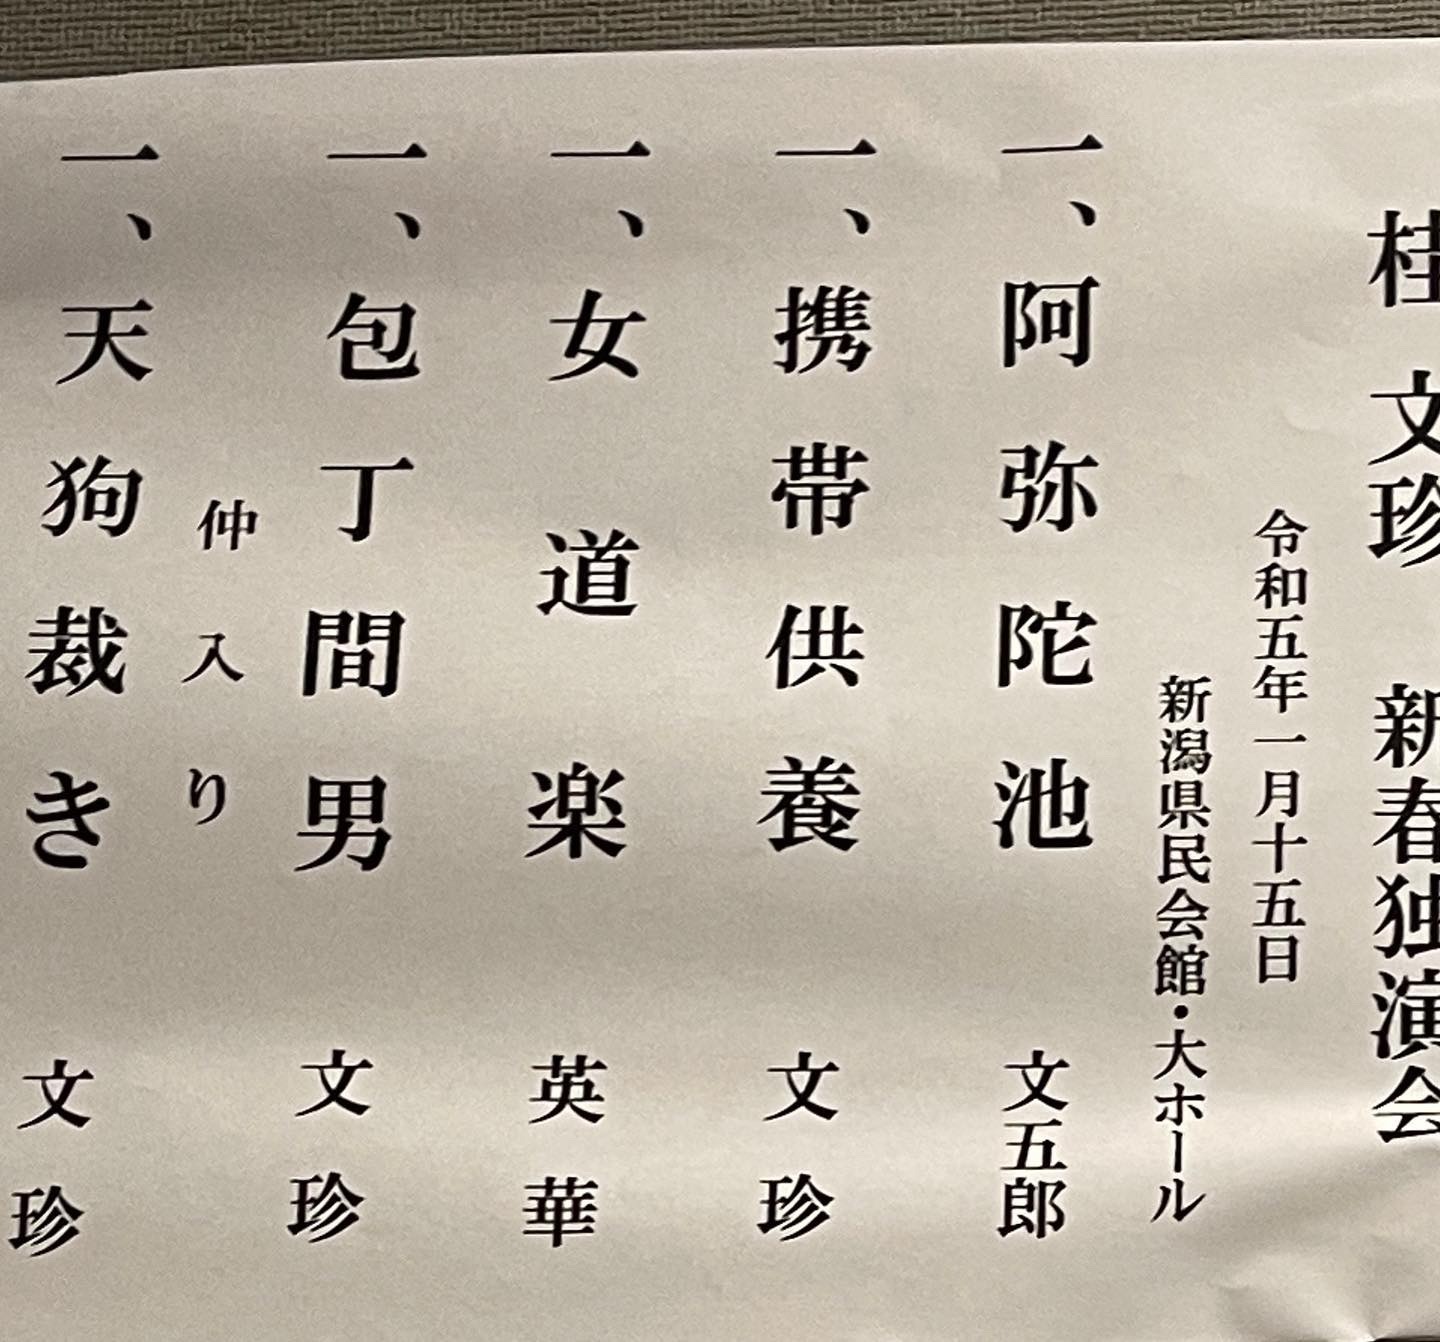 桂 文珍 新春独演会
令和五年一月十五日
新潟県民会館・大ホール
一、阿弥陀池 文五郎
一、携帯供養 文珍
一、女道楽 英華
一、包丁間男 文珍
仲入り
一、天狗裁き 文珍